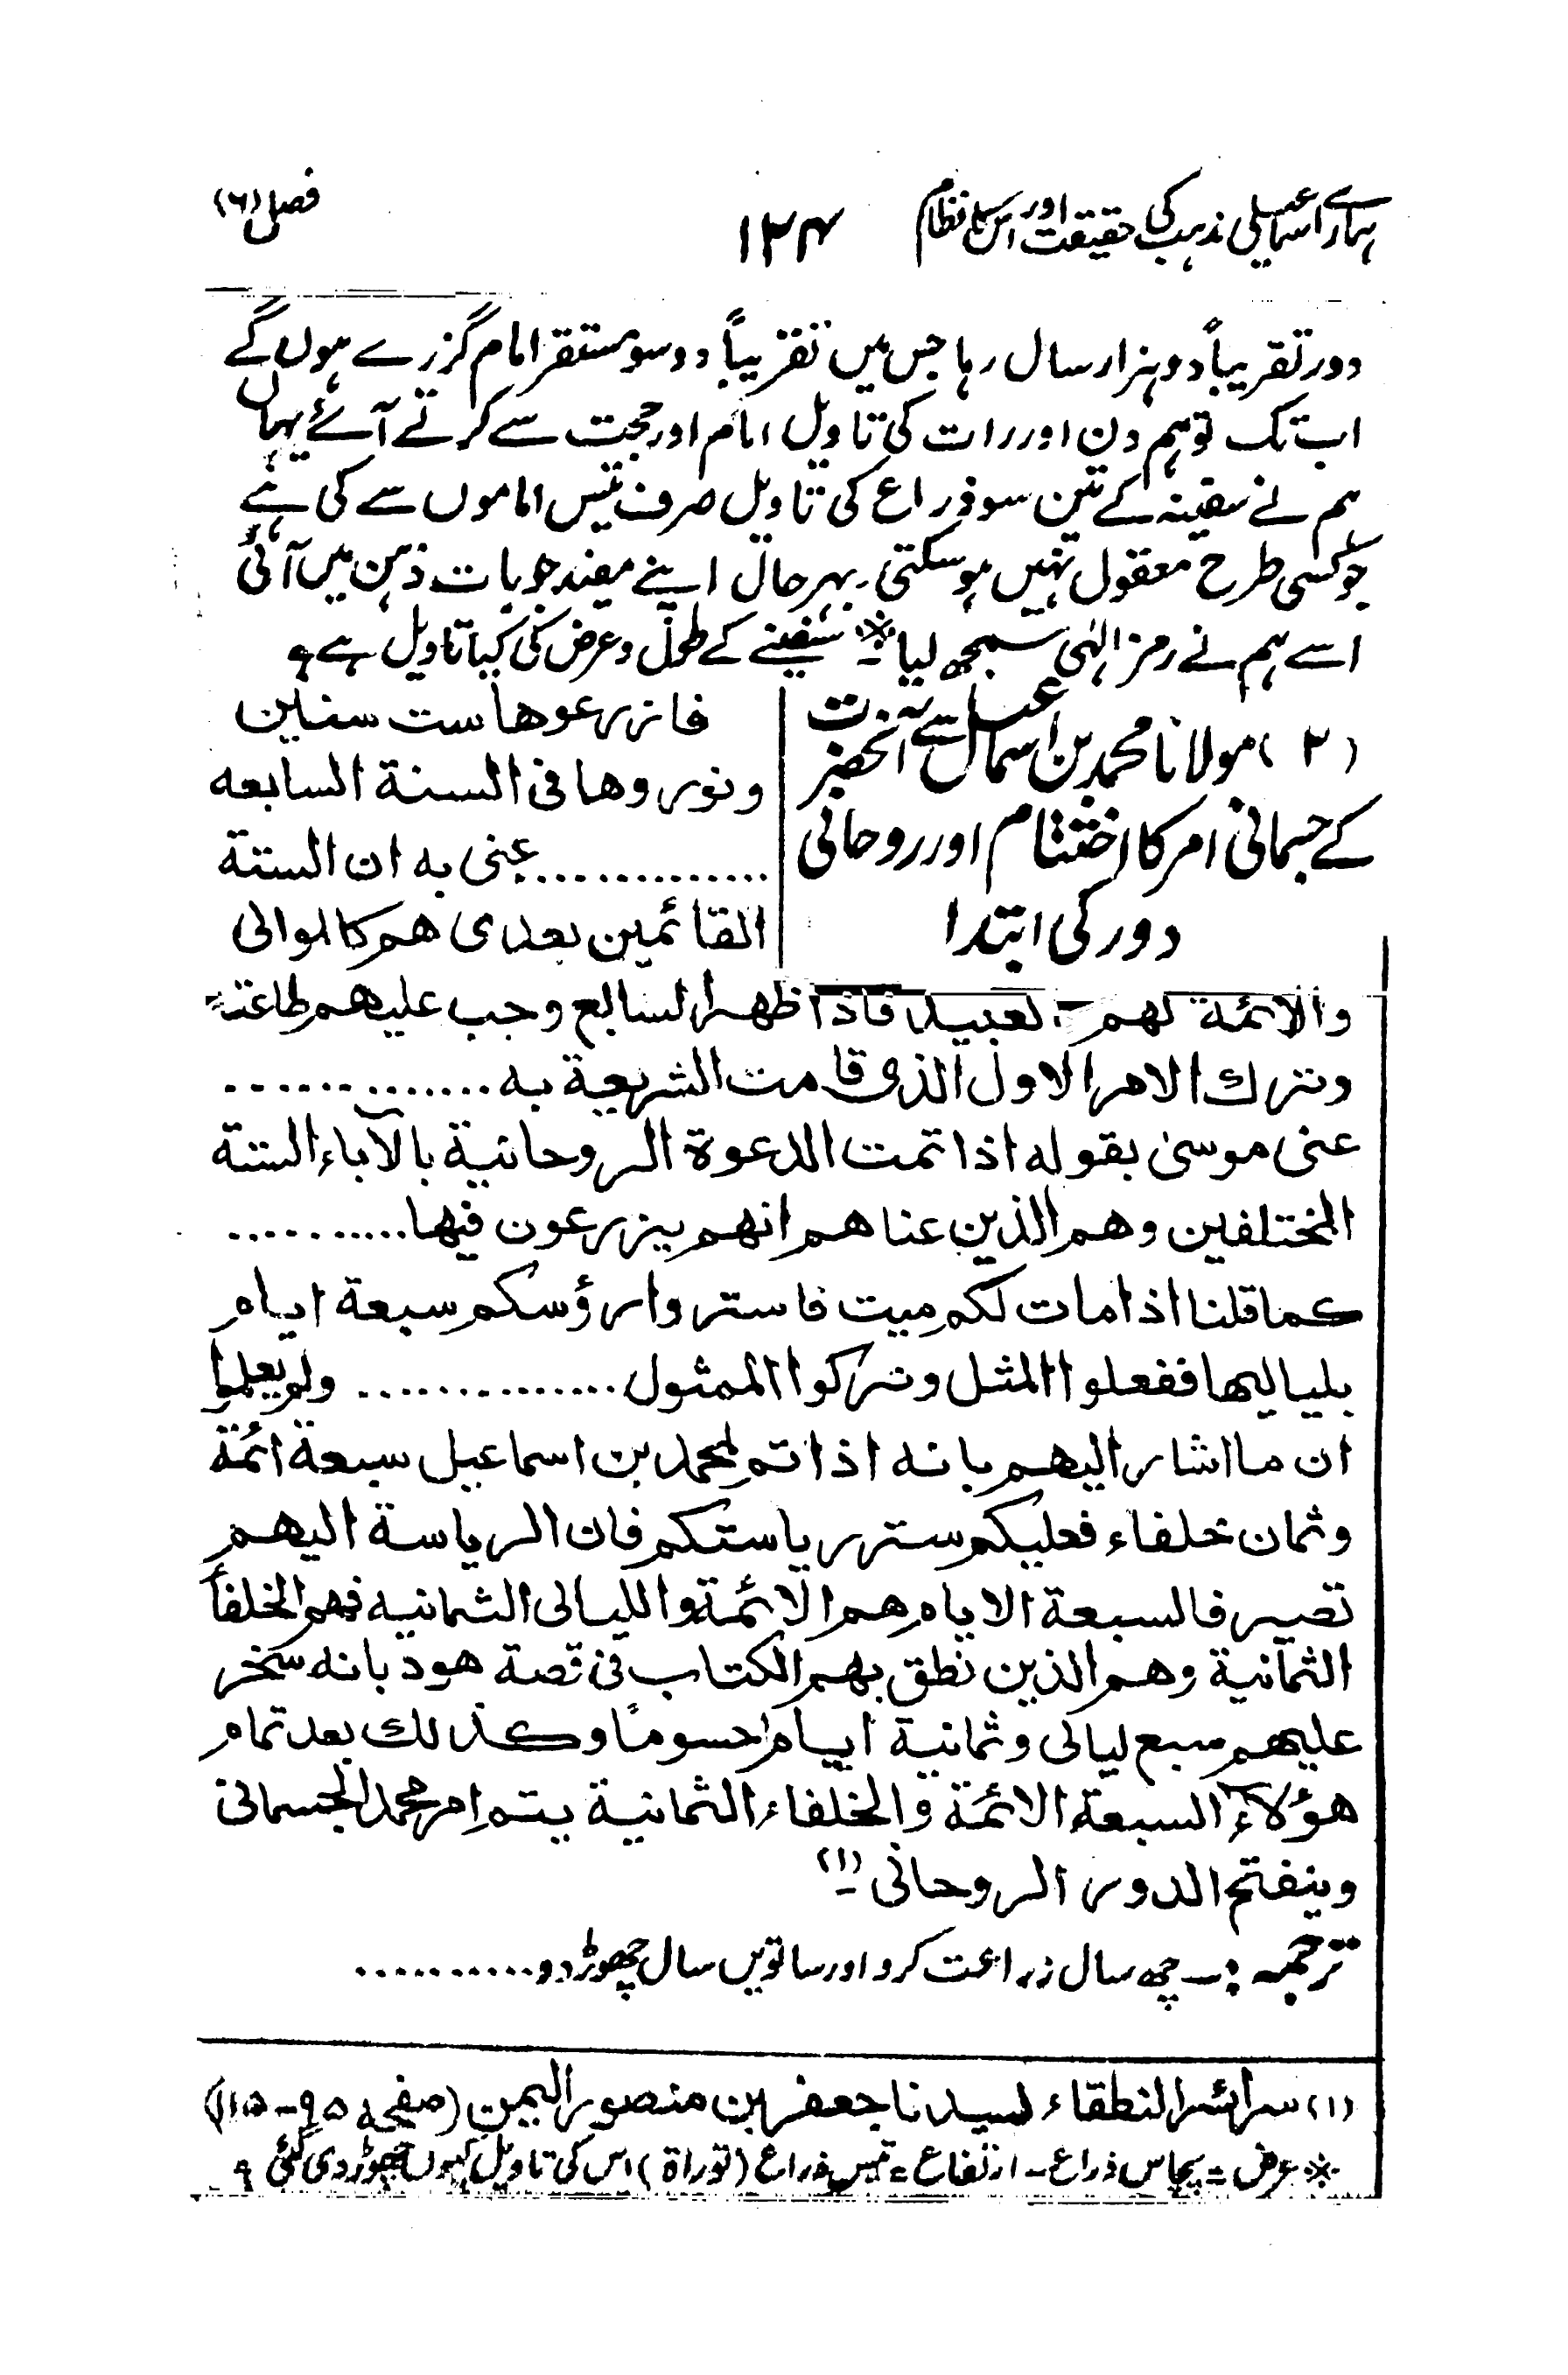 ہمارے اسماعیلی مذہب کی حقیقت اور اس کا نظام
۱۳۴
فصل (۶)
دور تقریباً دو ہزار سال رہا جس میں تقریباً دو سو مستقر امام گزرے ہوں گے
اب تک تو ہم دن اور رات کی تاویل امام اور حجت سے کرتے آئے یہاں
ہم نے سفینہ کے تین سو ذراع کی تاویل صرف تیس اماموں سے کی ہے
جو کسی طرح معقول نہیں ہو سکتی۔ بہر حال اپنے مفید جو بات ذہن میں آئی
اسے ہم نے رمز الٰہی سمجھ لیا※ سفینے کے طول و عرض کی کیا تاویل ہے؟
(۲) مولانا محمد بن اسماعیل سے آنحضرت
کے جسمانی امر کا اختتام اور روحانی
دور کی ابتدا
فازرعوها ست سنین
ونوروها فی السنة السابعه
.............. عنی به ان الستة
القائمین بعدی هم کالموالی
والائمة لهم کالعبید فاذا ظهر السابع وجب علیهم طاعته
وترك الامر الاول الذی قامت الشریعة به ..............
عنی موسیٰ بقوله اذا تمت الدعوة الروحانیة بالآباء الستة
المختلفین وهم الذین عناهم انهم یزرعون فیها ...........
کما قلنا اذا مات لکم میت فاستروا رؤسکم سبعة ایام
بلیالیها ففعلوا المثل وترکوا الممثول .............. ولم یعلموا
ان ما اشار الیهم بانه اذا تم لمحمد بن اسماعیل سبعة ائمة
وثمان خلفاء فعلیکم ستر ریاستکم فان الریاسة الیهم
تصیر فالسبعة الایام هم الائمة واللیالی الثمانیه فهم الخلفأ
الثمانیة وهم الذین نطق بهم الکتاب فی قصة هود بانه سخر
علیهم سبع لیالی وثمانیة ایام حسوماً وکذلك بعد تمام
هؤلاء السبعة الائمة والخلفاء الثمانیة یتم امر محمد الجسمانی
وینفتح الدور الروحانی (۱)
ترجمہ :۔ چھ سال زراعت کرو اور ساتویں سال چھوڑ دو ...........
(۱) سرائر النطقاء لسیدنا جعفر بن منصور الیمن (صفحہ ۹۵-۱۱۵)
※ عرض = پچاس ذراع - ارتفاع = تیس ذراع (توراة) اس کی تاویل کیوں چھوڑ دی گئی ؟